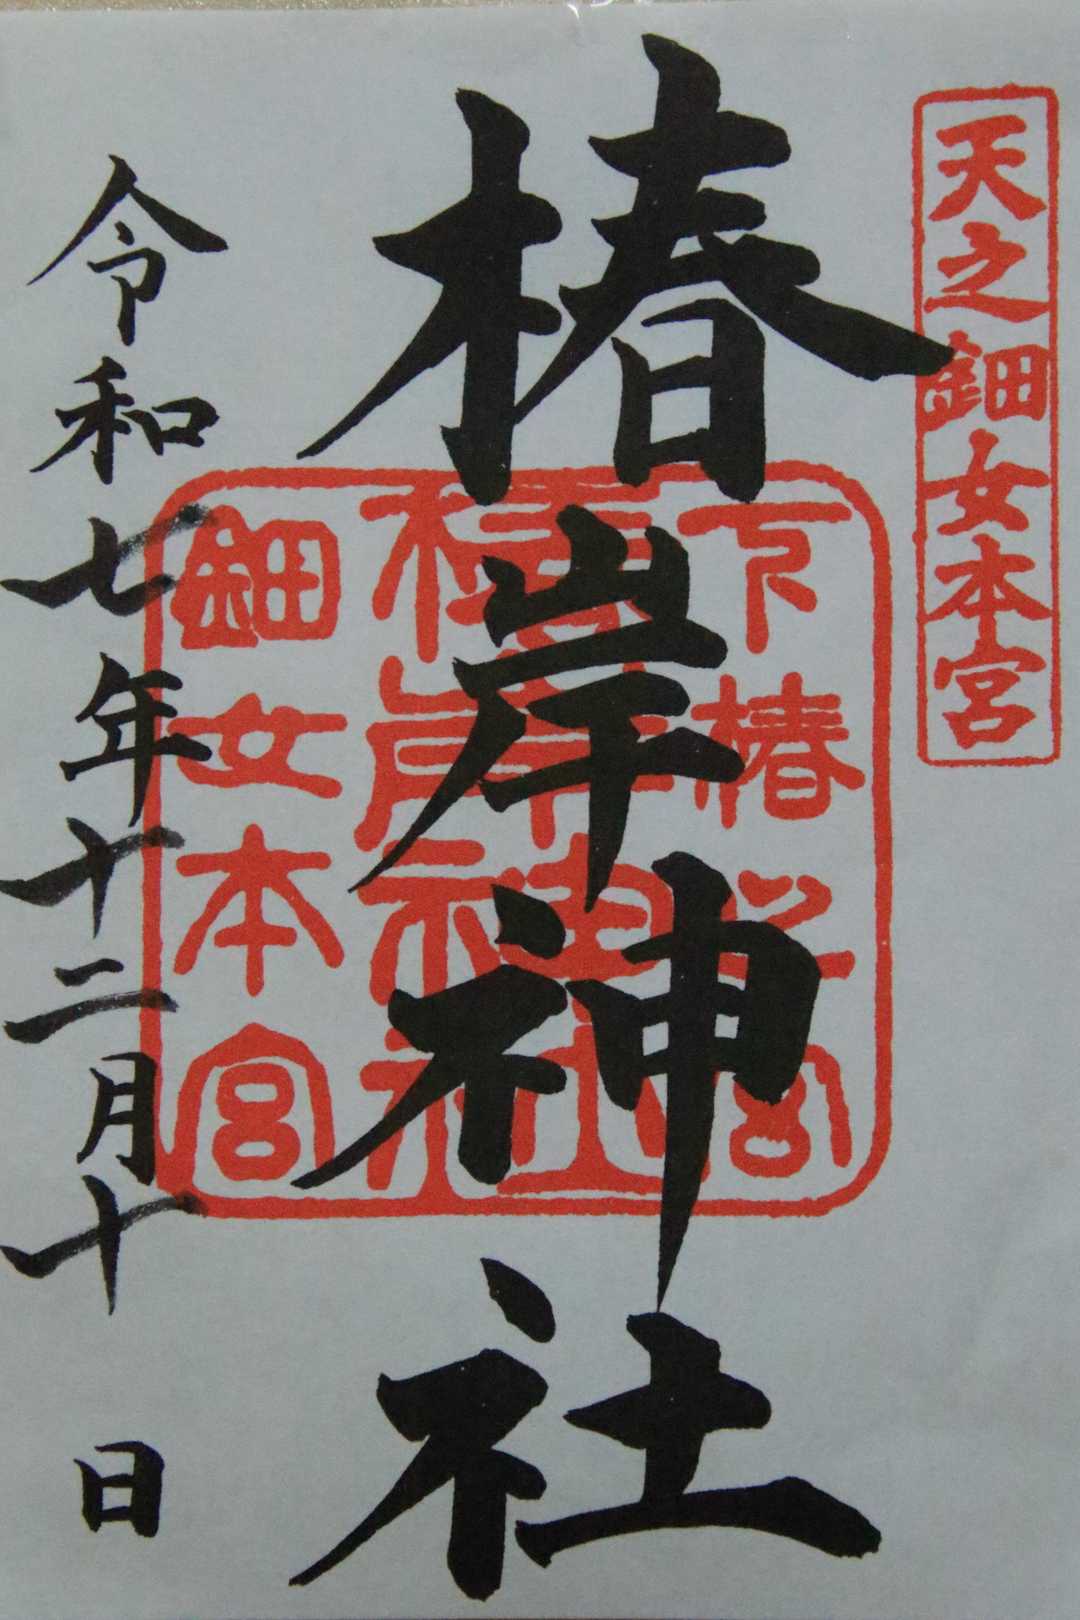 天之鈿女本宮
椿岸神社
鈿女本宮
令和七年十二月十日